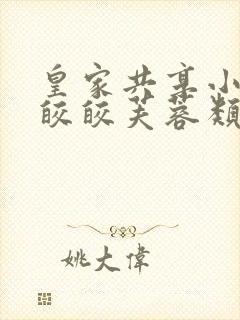 皇家共享小
皎皎芙蓉类
姚大偉